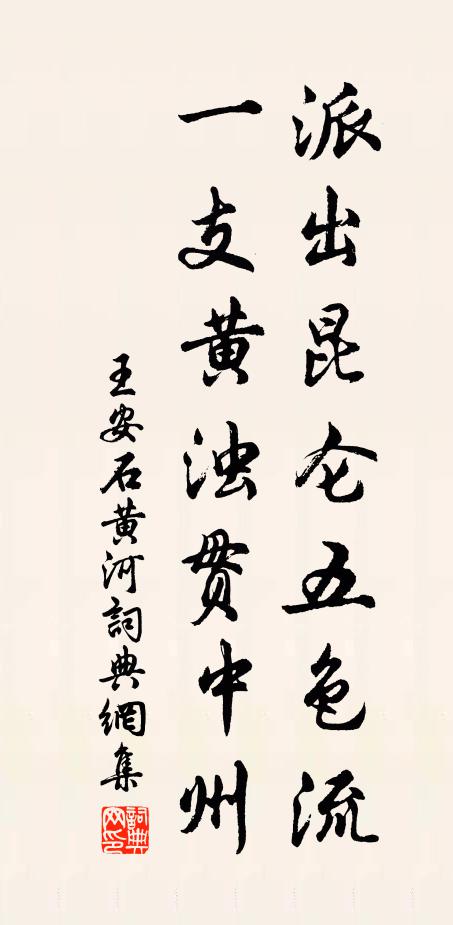 派出昆仑五色流
一支黄浊贯中州
王安石黄河詞典網集
詞典网印